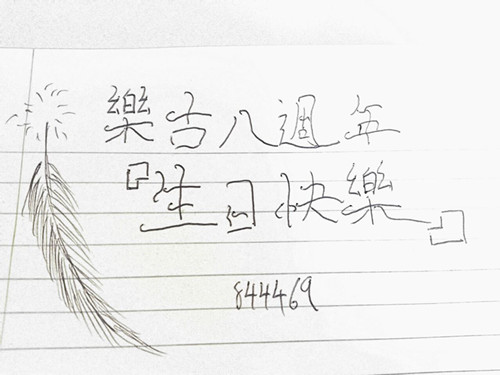 樂古八週年
『生日快樂』
844469